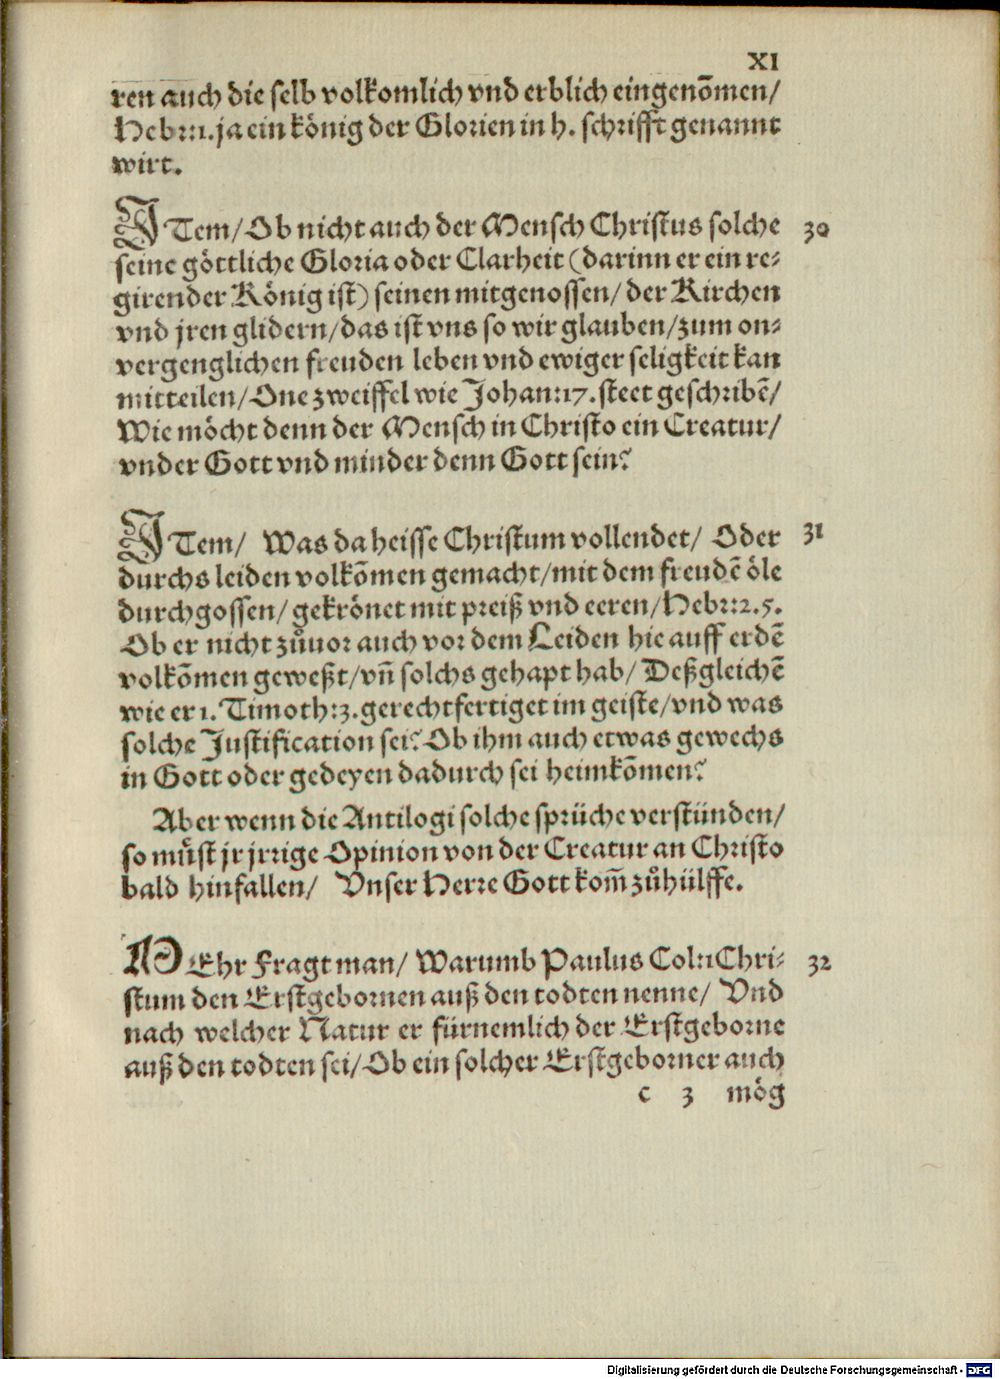 XI
ren auch die selb volkomlich vnd erblich eingenõmen/
Hebr:1. ja ein könig der Glorien in h. schrifft genannt
wirt.
ITem/ Ob nicht auch der Mensch Christus solche 30
seine göttliche Gloria oder Clarheit (darinn er ein re-
girender König ist) seinen mitgenossen/ der Kirchen
vnd jren glidern/ das ist vns so wir glauben/ zum on-
vergenglichen freuden leben vnd ewiger seligkeit kan
mitteilen/ One zweiffel wie Johan:17. steet geschribẽ/
Wie möcht denn der Mensch in Christo ein Creatur/
vnder Gott vnd minder denn Gott sein?
ITem/ Was da heisse Christum vollendet/ Oder 31
durchs leiden volkõmen gemacht/ mit dem freudẽ öle
durchgossen/ gekrönet mit preiß vnd eeren/ Hebr:2.5.
Ob er nicht zůuor auch vor dem Leiden hie auff erdẽ
volkõmen geweßt/ vñ solchs gehapt hab/ Deßgleichẽ
wie er 1. Timoth:3. gerechtfertiget im geiste/ vnd was
solche Justification sei? Ob ihm auch etwas gewechs
in Gott oder gedeyen dadurch sei heimkõmen?
Aber wenn die Antilogi solche sprüche verstünden/
so müst jr jrrige Opinion von der Creatur an Christo
bald hinfallen/ Vnser Herre Gott kom̃ zůhülffe.
MEhr Fragt man/ Warumb Paulus Col:1 Chri- 32
stum den Erstgebornen auß den todten nenne/ Vnd
nach welcher Natur er fürnemlich der Erstgeborne
auß den todten sei/ Ob ein solcher Erstgeborner auch
c 3 mög
Digitalisierung gefördert durch die Deutsche Forschungsgemeinschaft - DFG